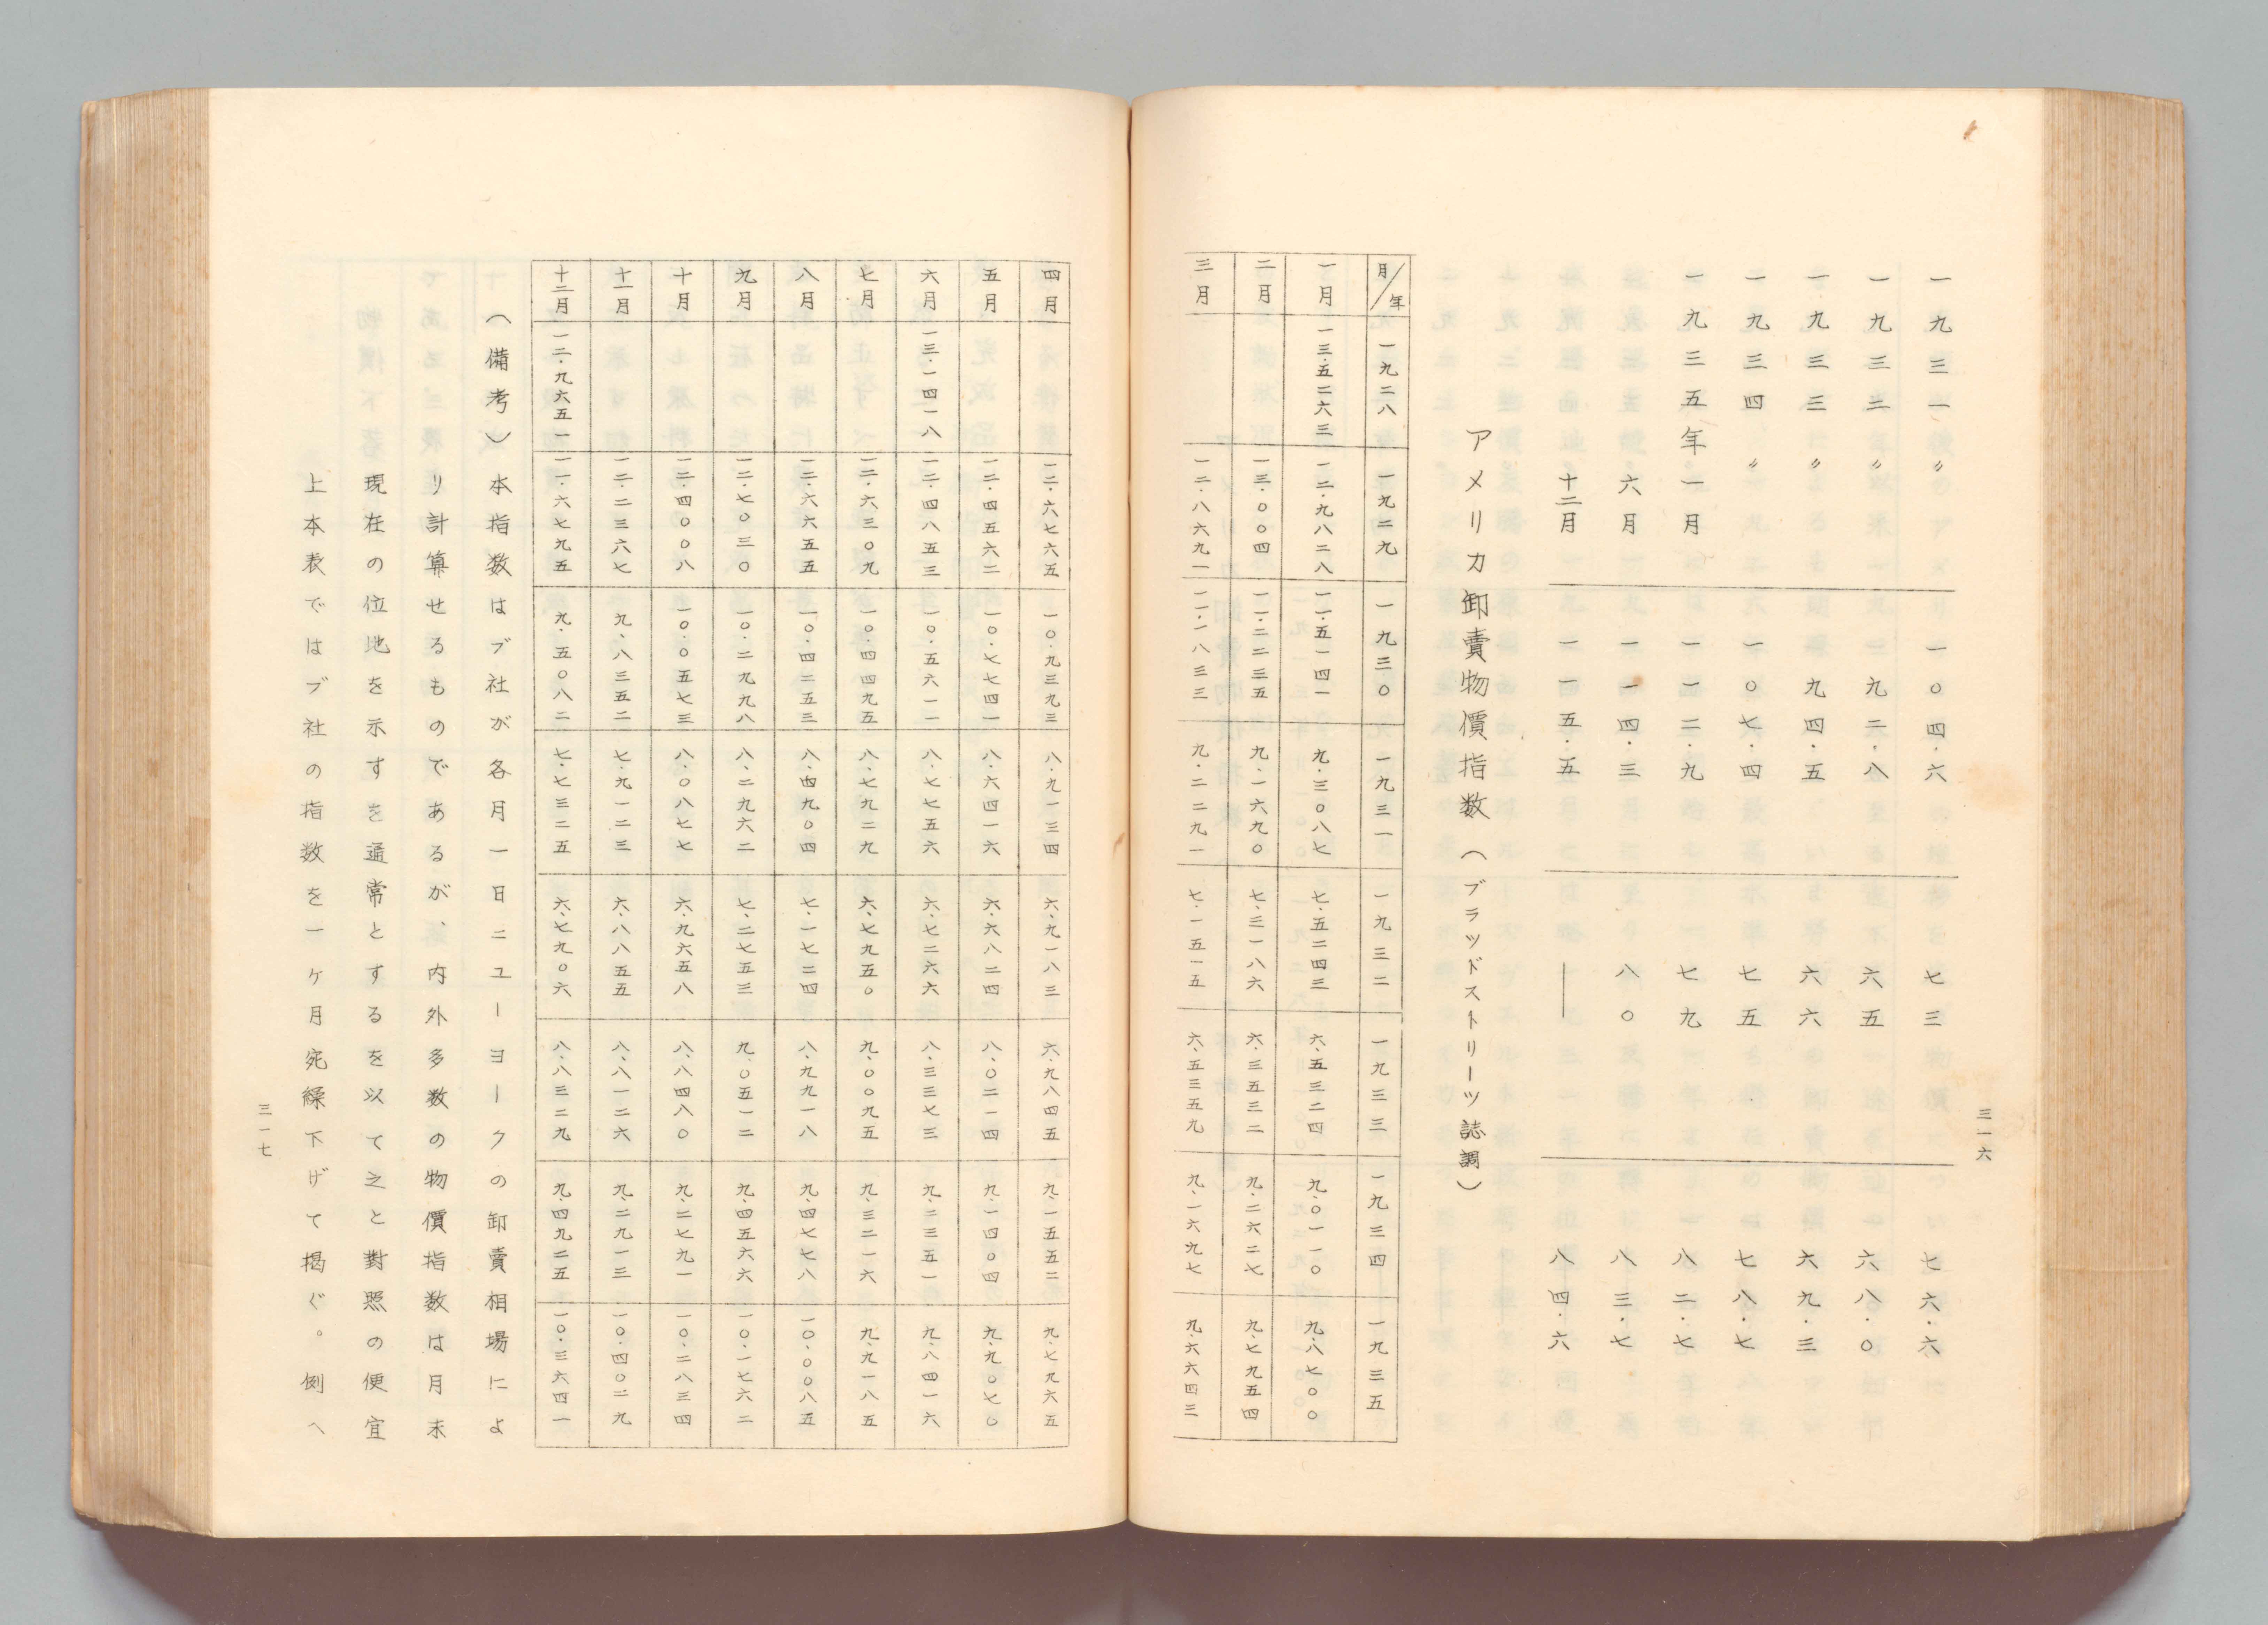 三一六
一九三一〃 一〇四・六 七三 七六・六
一九三二〃 九二・八 六五 六八・〇
一九三三〃 九四・五 六六 六九・三
一九三四〃 一〇七・四 七五 七八・七
一九三五年一月 一一二・九 七九 八二・七
六月 一一四・三 八〇 八三・七
十二月 一一五・五 ―― 八四・六
アメリカ卸賣物價指数（ブラッドストリーツ誌調）
月／年 一九二八 一九二九 一九三〇 一九三一 一九三二 一九三三 一九三四 一九三五
一月 一三・五二六三 一二・九八二八 一一・五一四一 九・三〇八七 七・五二四三 六・五三二四 九・〇一一〇 九・八七〇〇
二月 一三・〇〇四 一一・二二三五 九・一六九〇 七・三一八六 六・三五三二 九・二六二七 九・七九五四
三月 一二・八六九一 一一・一八三三 九・二二九一 七・一五一五 六・五三五九 九・一六九七 九・六六四三
四月 一二・六七六五 一〇・九三九三 八・九一三四 六・九一八三 六・九八四五 九・一五五二 九・七九六五
五月 一二・四五六二 一〇・七七四一 八・六四一六 六・六八二四 八・〇二一四 九・一四〇四 九・九〇七〇
六月 一三・一四一八 一二・四八五三 一〇・五六一一 八・七七五六 六・七二六六 八・三三七三 九・二三五一 九・八四一六
七月 一二・六三〇九 一〇・四四九五 八・七九二九 六・七九五〇 九・〇〇九五 九・三二一六 九・九一八五
八月 一二・六六五五 一〇・四二五三 八・四九〇四 七・一七二四 八・九九一八 九・四七七八 一〇・〇〇八五
九月 一二・七〇三〇 一〇・二九九八 八・二九六二 七・二七五三 九・〇五一二 九・四五六六 一〇・一七六二
十月 一二・四〇〇八 一〇・〇五七三 八・〇八七七 六・九六五八 八・八四八〇 九・二七九一 一〇・二八三四
十一月 一二・二三六七 九・八三五二 七・九一二三 六・八八五五 八・八一二六 九・二九一三 一〇・四〇二九
十二月 一二・九六五一 一一・六七九五 九・五〇八二 七・七三二五 六・七九〇六 八・八三二九 九・四九二五 一〇・三六四一
（備考）本指数はブ社が各月一日ニユーヨークの卸賣相場によ
り計算せるものであるが、内外多数の物價指数は月末
現在の位地を示すを通常とするを以て之と對照の便宜
上本表ではブ社の指数を一ヶ月宛繰下げて掲ぐ。例へ
三一七